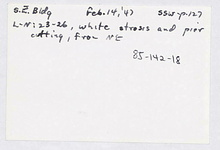 S.E. Bldg Feb. 14, '47 SSW-p.127
L-N: 23-26, white stroses and pier
cutting, from NE
85-142-18